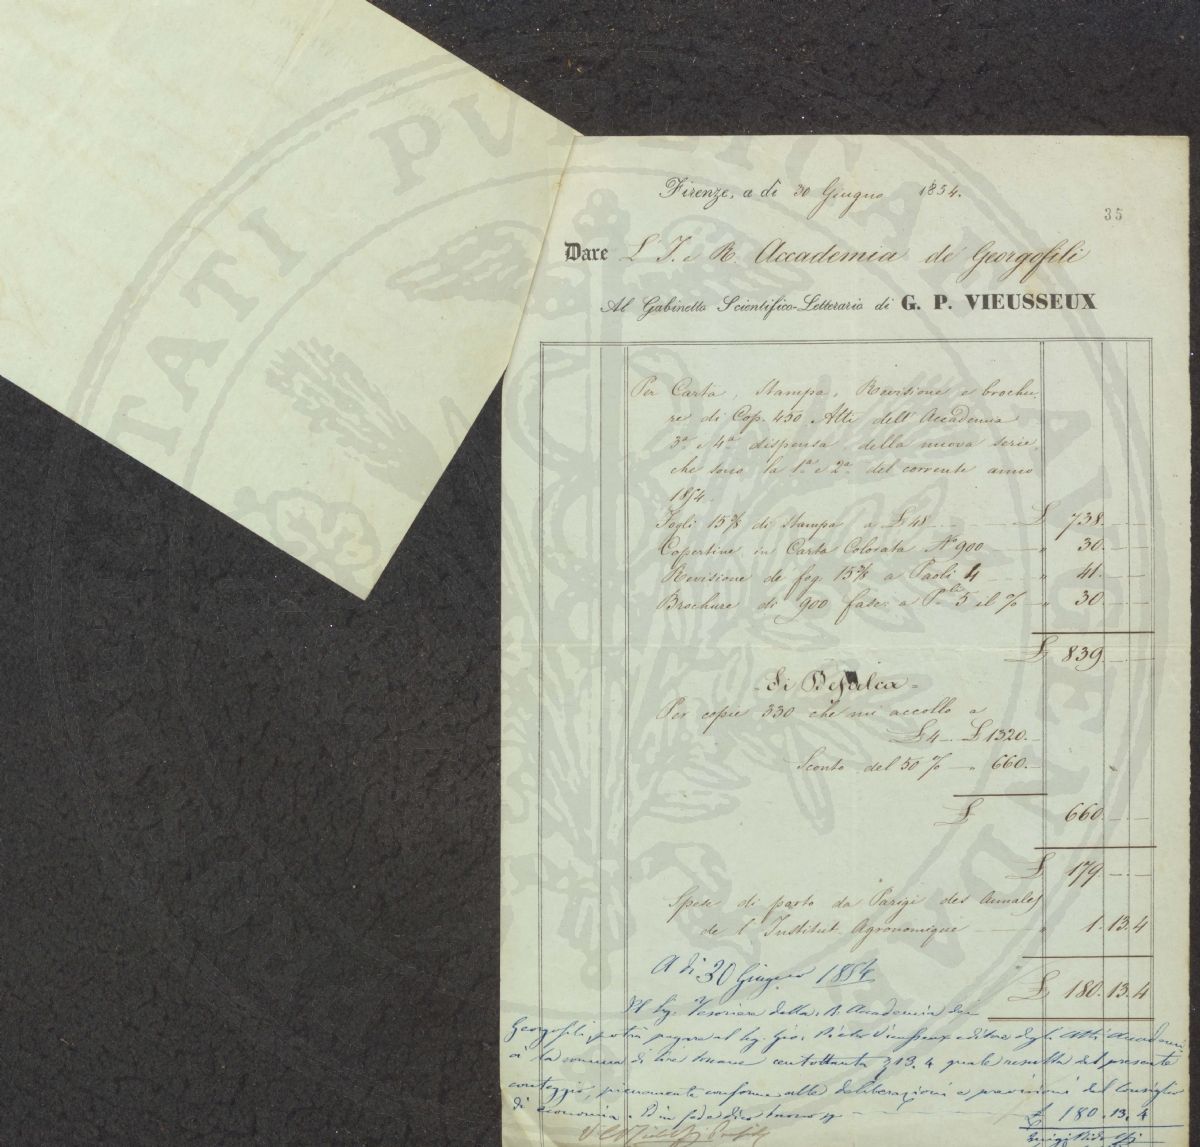 Firenze, a dì 30 Giugno 1854.
35
Dare L'I. e R. Accademia de Georgofili
Al Gabinetto Scientifico-Letterario di G. P. VIEUSSEUX
Per Carta, Stampa, Revisione e brochu
re di Cop. 450 Atti dell'Accademia
3ª e 4ª dispensa della nuova serie
che sono la 1ª e 2ª del corrente anno
1854.
Fogli 15 3/8 di Stampa a £ 48 £ 738.
Copertine in Carta Colorata N° 900 " 30.
Revisione de fog. 15 3/8 a Paoli 4 " 41.
Brochure di 900 fasc. a P.li 5 il % " 30.
£ 839
Si Defalca
Per copie 330 che mi accollo a
£ 4 £ 1320.
Sconto del 50 % " 660.
£ 660.
£ 179
Spese di porto da Parigi des Annales
de l'Institut Agronomique " 1.13.4
£ 180.13.4
A dì 30 Giugno 1854
Il Sig. Tesoriere della R. Accademia dei
Georgofili, potrà pagare al Sig. Gio. Pietro Vieusseux editore degli Atti Accademi
ci la somma di lire toscane centottanta 13.4 quale resulta dal presente
conteggio, pienamente conforme alle deliberazioni e previsioni del Consiglio
di economia.
£ 180.13.4